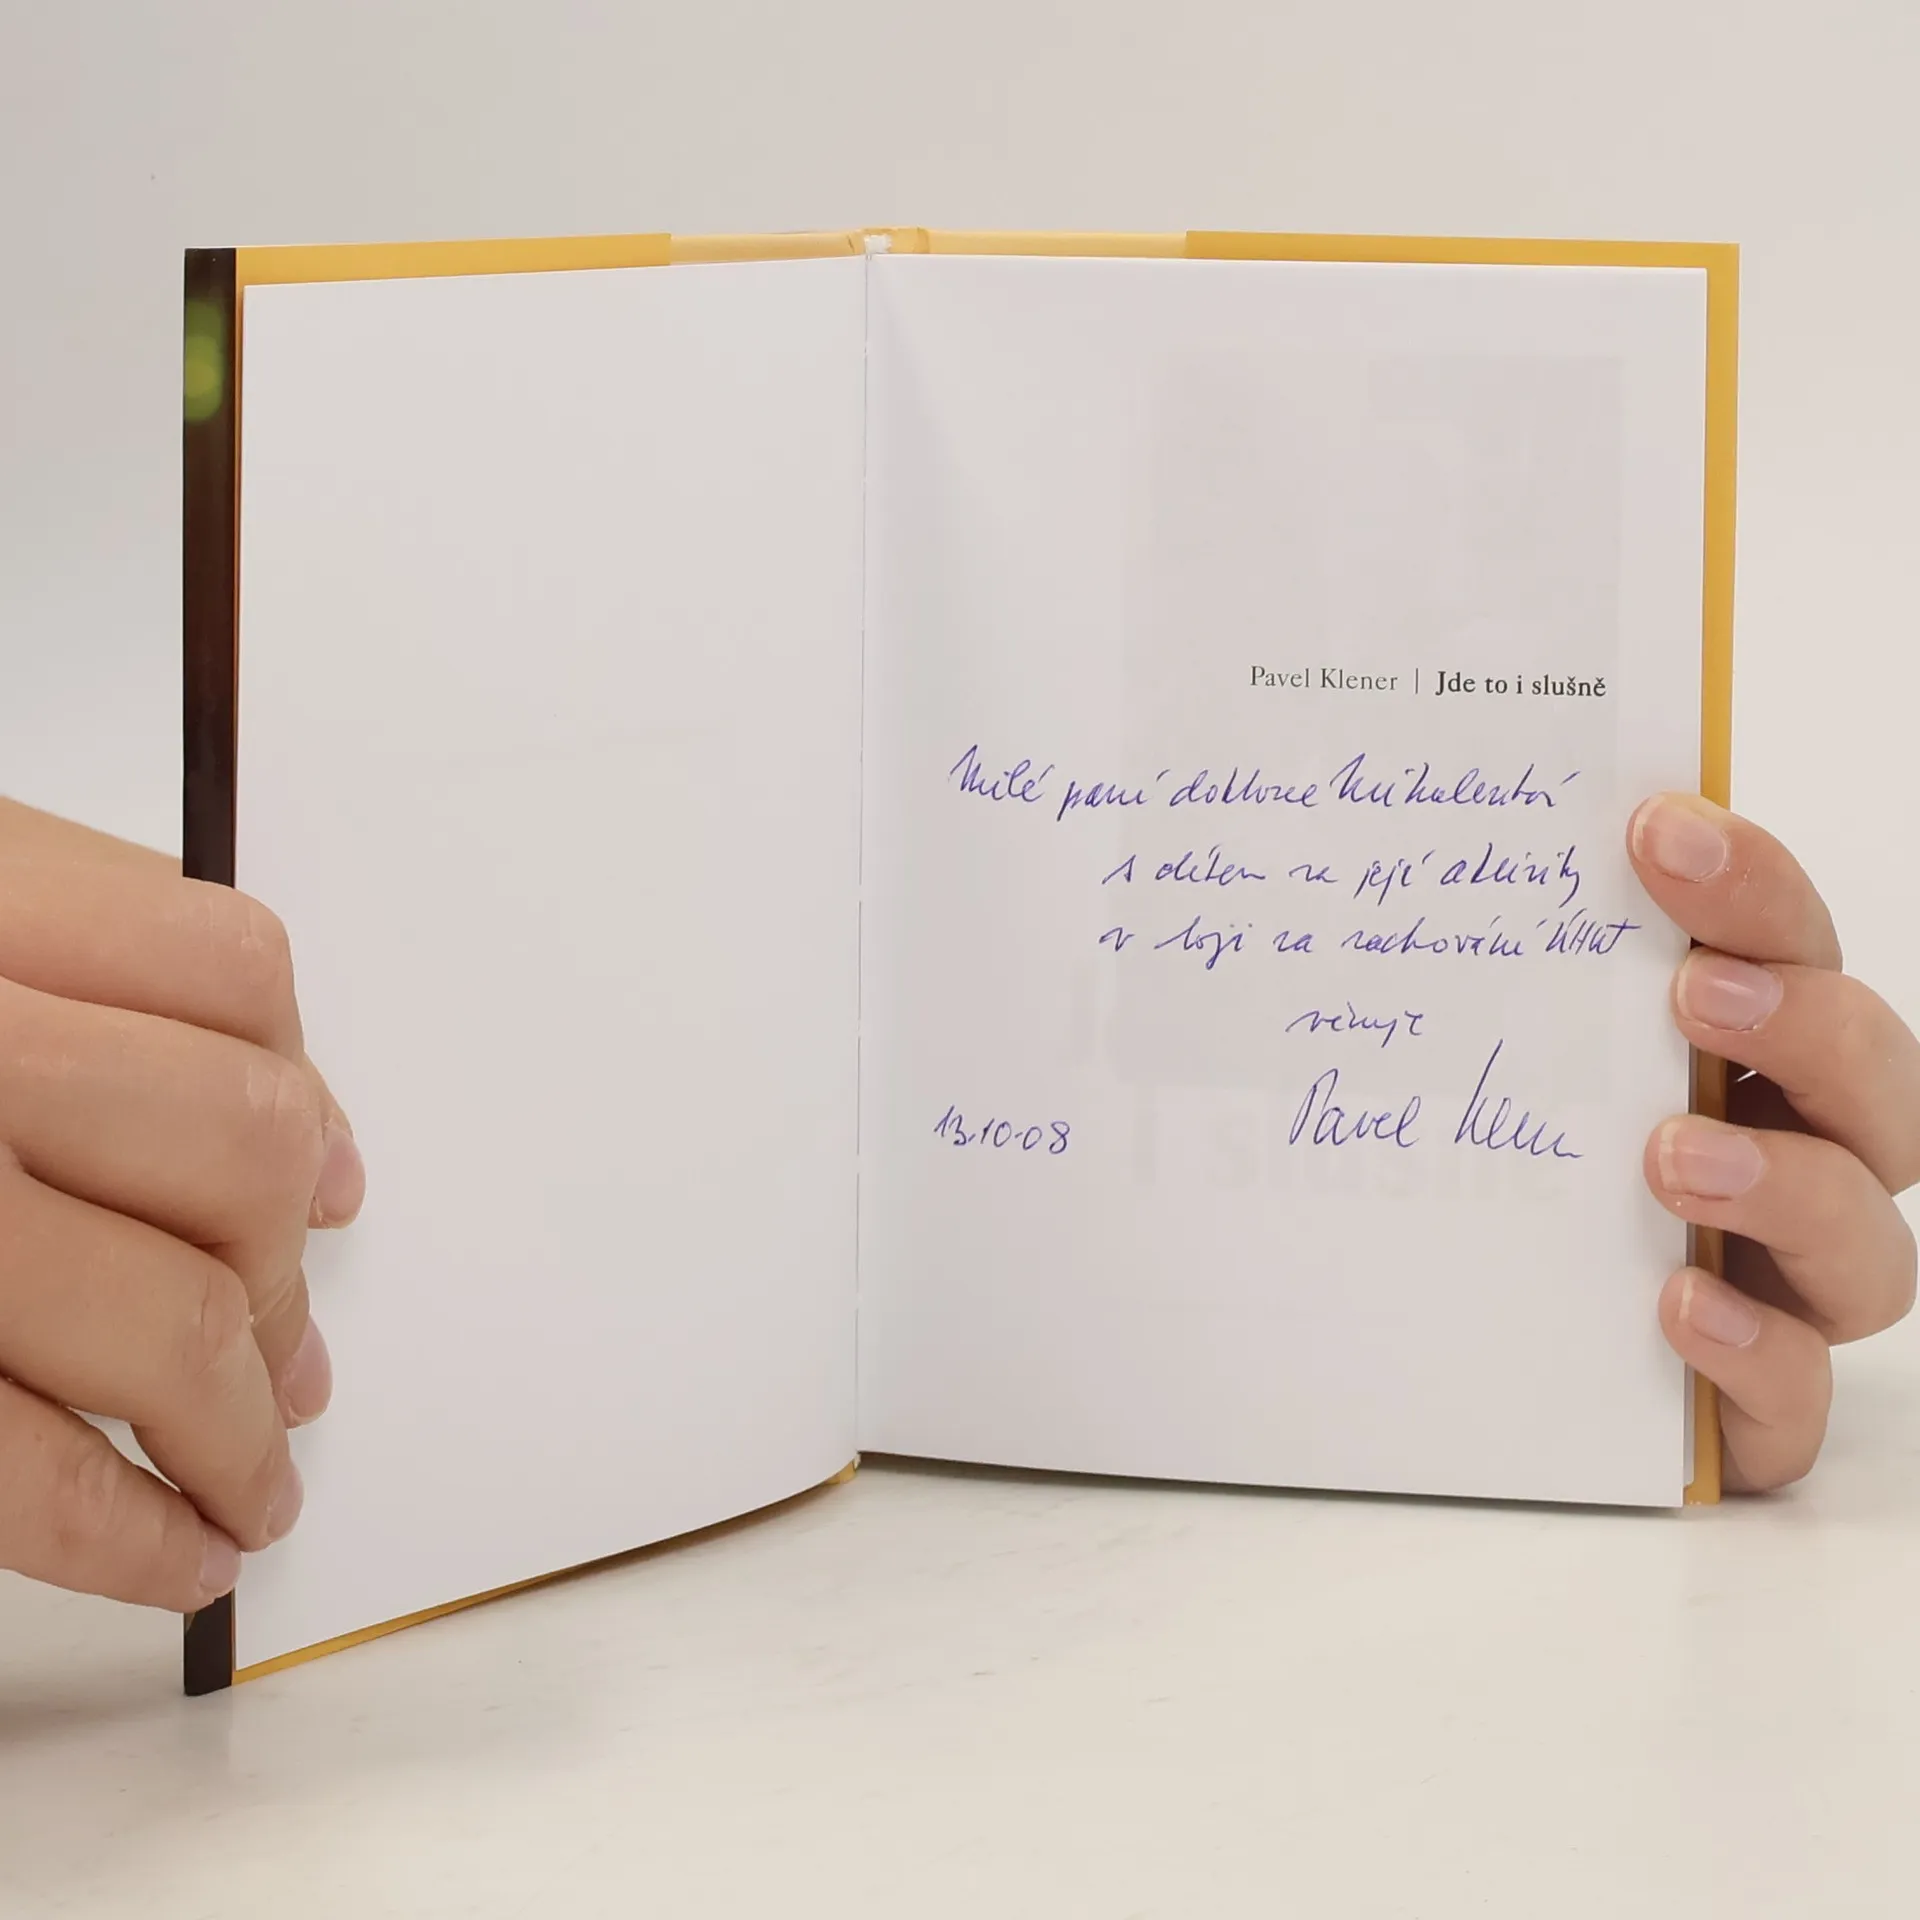 Pavel Klener | Jde to i slušně
Milé paní doktorce
s díkem za její aktivity
v boji za zachování ÚHKT
věnuje
Pavel Klener
13.10.08